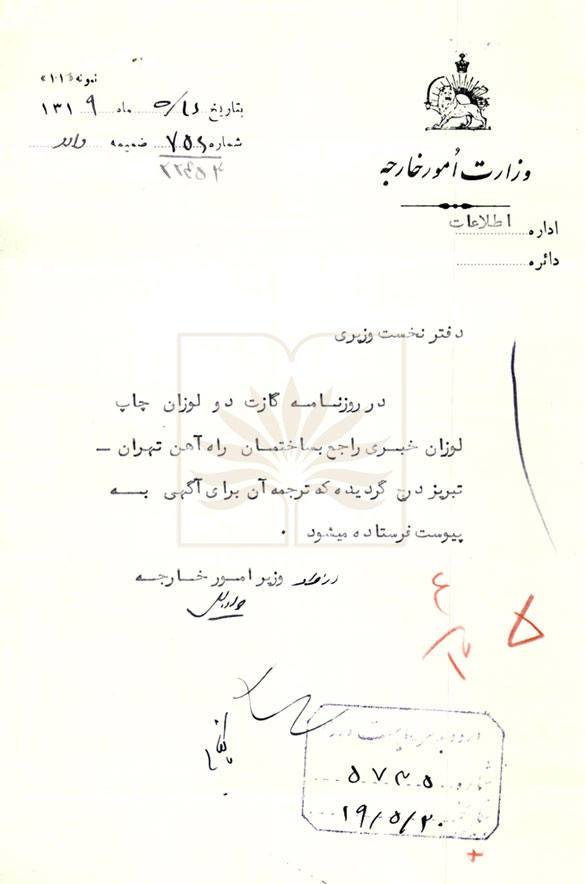 نمونه «۱۱۵»
بتاریخ ۱۵/۵ ماه ۱۳۱۹
شماره ضمیمه
۲۲۴۵۴
وزارت اُمور خارجه
اداره اطلاعات
دائره
دفتر نخست وزیری
در روزنامه گازت دو لوزان چاپ
لوزان خبری راجع بساختمان راه آهن تهران –
تبریز درج گردیده که ترجمه آن برای آگهی به
پیوست فرستاده میشود .
وزیر امور خارجه
شماره ۵۷۳۵
۱۹/۵/۲۰